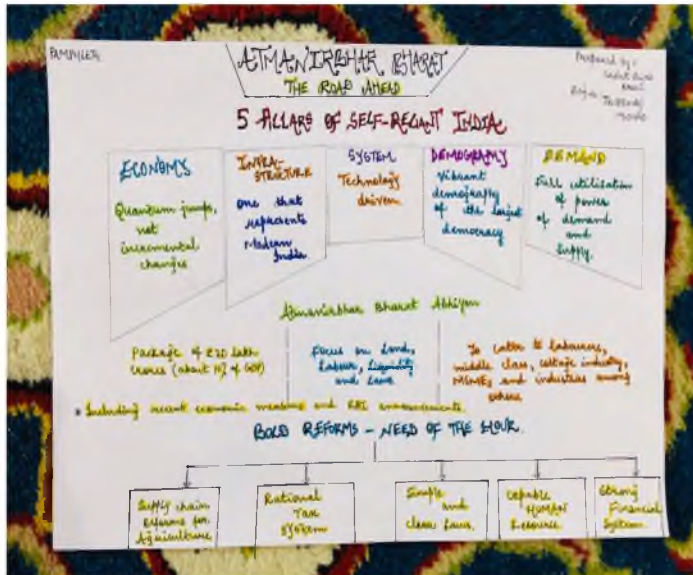 PAMPHLET
ATMANIRBHAR BHARAT
THE ROAD AHEAD
Prepared by:
5 PILLARS OF SELF-RELIANT INDIA
ECONOMY
Quantum jump,
not
incremental
changes
INFRA-
STRUCTURE
one that
represents
Modern
India
SYSTEM
Technology
driven
DEMOGRAPHY
Vibrant
demography
of the largest
democracy
DEMAND
Full utilisation
of power
of demand
and
Supply.
Atmanirbhar Bharat Abhiyan
Package of ₹20 lakh
crores (about 10% of GDP)
Focus on Land,
Labour, Liquidity
and Laws
To cater to labourers,
middle class, cottage industry,
MSMEs and industries among
others
* Including recent economic measures and RBI announcements.
BOLD REFORMS - NEED OF THE HOUR.
Supply chain
Reforms for
Agriculture
Rational
Tax
System
Simple
and
clear Laws.
Capable
HUMAN
Resource
Strong
Financial
System